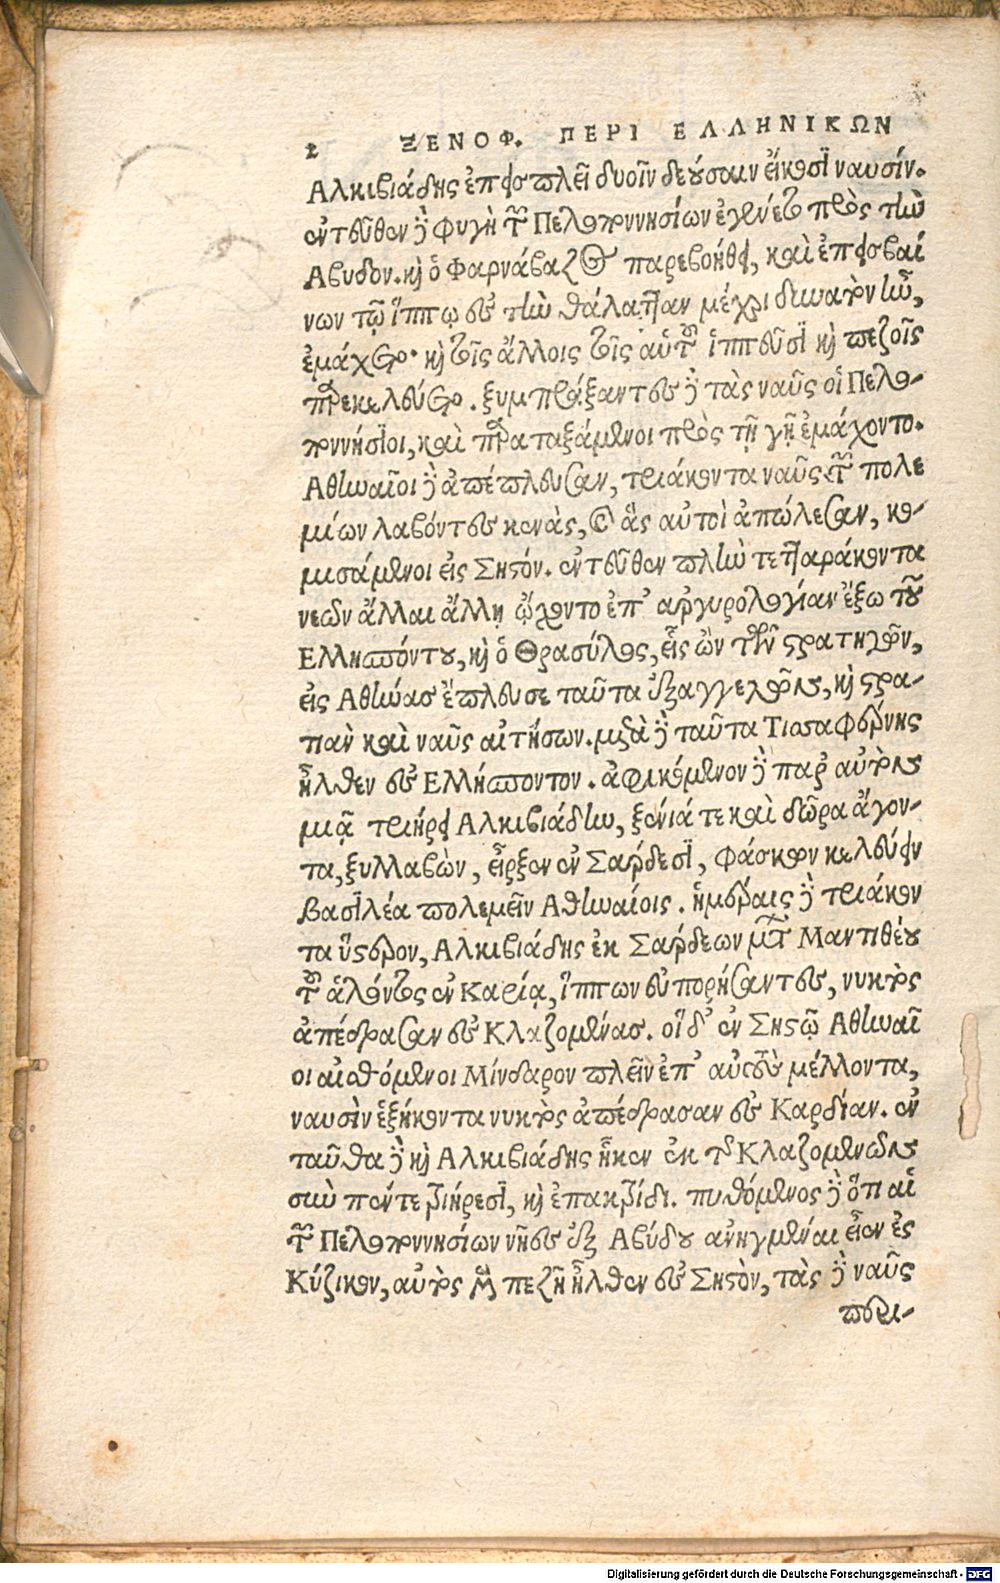 2 ΞΕΝΟΦ. ΠΕΡΙ ΕΛΛΗΝΙΚΩΝ
Αλκιβιάδης ἐπεισπλεῖ δυοῖν δεούσαιν εἴκοσϊ ναυσίν.
ἐντεῦθεν δὲ Φυγὴ τῶν Πελοποννησίων ἐγένετο πρὸς τὴν
Αβυδον. καὶ ὁ Φαρνάβαζος παρεβοήθει, καὶ ἐπεισβαί
νων τῷ ἵππῳ εἰς τὴν θάλατταν μέχρι δυνατὸν ἦν,
ἐμάχετο· καὶ τοῖς ἄλλοις τοῖς αὑτοῦ ἱππεῦσϊ καὶ πεζοῖς
παρεκελεύετο. ξυμπράξαντες δὲ τὰς ναῦς οἱ Πελο-
ποννήσϊοι, καὶ παραταξάμενοι πρὸς τῇ γῇ ἐμάχοντο.
Αθηναῖοι δὲ ἀπέπλευσαν, τριάκοντα ναῦς τῶν πολε
μίων λαβόντες κενὰς, καὶ ἃς αὐτοὶ ἀπώλεσαν, κο-
μισάμενοι εἰς Σηστόν. ἐντεῦθεν πλὴν τετταράκοντα
νεῶν ἄλλαι ἄλλῃ ᾤχοντο ἐπ' ἀργυρολογίαν ἔξω τοῦ
Ελλησπόντου, καὶ ὁ Θρασύλος, εἷς ὢν τῶν στρατηγῶν,
εἰς Αθήνας ἔπλευσε ταῦτα ἐξαγγελῶν, καὶ στρα-
τιὰν καὶ ναῦς αἰτήσων. μετὰ δὲ ταῦτα Τισσαφέρνης
ἦλθεν εἰς Ελλήσποντον. ἀφικόμενον δὲ παρ' αὐτὸν
μιᾷ τριήρει Αλκιβιάδην, ξένιά τε καὶ δῶρα ἄγον-
τα, ξυλλαβὼν, εἶρξεν ἐν Σαρδεσϊ, φάσκων κελεύειν
βασϊλέα πολεμεῖν Αθηναίοις. ἡμέραις δὲ τριάκον
τα ὕστερον, Αλκιβιάδης ἐκ Σαρδεων μετὰ Μαντιθέου
τοῦ ἁλόντος ἐν Καρίᾳ, ἵππων εὐπορήσαντες, νυκτὸς
ἀπέδρασαν εἰς Κλαζομενάς. οἱ δ' ἐν Σηστῷ Αθηναῖ
οι αἰσθόμενοι Μίνδαρον πλεῖν ἐπ' αὐτοὺς μέλλοντα,
ναυσὶν ἑξήκοντα νυκτὸς ἀπέδρασαν εἰς Καρδίαν. ἐν
ταῦθα δὲ καὶ Αλκιβιάδης ἧκεν ἐκ τῶν Κλαζομενῶν
σὺν πέντε τριήρεσϊ, καὶ ἐπακτρίδι. πυθόμενος δὲ ὅτι αἱ
τῶν Πελοποννησίων νῆες ἐξ Αβύδου ἀνηγμέναι εἶεν ἐς
Κύζικον, αὐτὸς μὲν πεζῇ ἦλθεν εἰς Σηστὸν, τὰς δὲ ναῦς
περι-
Digitalisierung gefördert durch die Deutsche Forschungsgemeinschaft - DFG